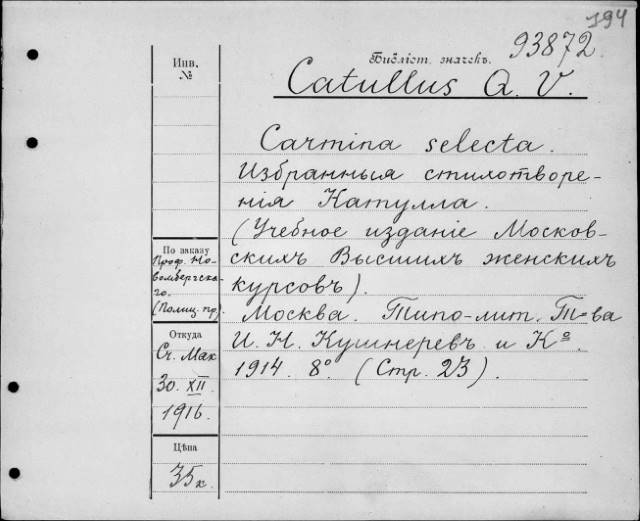 194
93872.
Инв.
№
Библіот. значекъ.
Catullus Q. V.
Carmina selecta.
Избранныя стихотворе-
нія Катулла.
(Учебное изданіе Москов-
скихъ Высшихъ женскихъ
курсовъ).
Москва. Типо-лит. Т-ва
И. Н. Кушнеревъ и К⁰
1914. 8⁰ (Стр. 23).
По заказу
Проф. Но-
вомбергска-
го.
(Полиц. пр.)
Откуда
Сч. Мах
30. XII.
1916.
Цѣна
35 к.